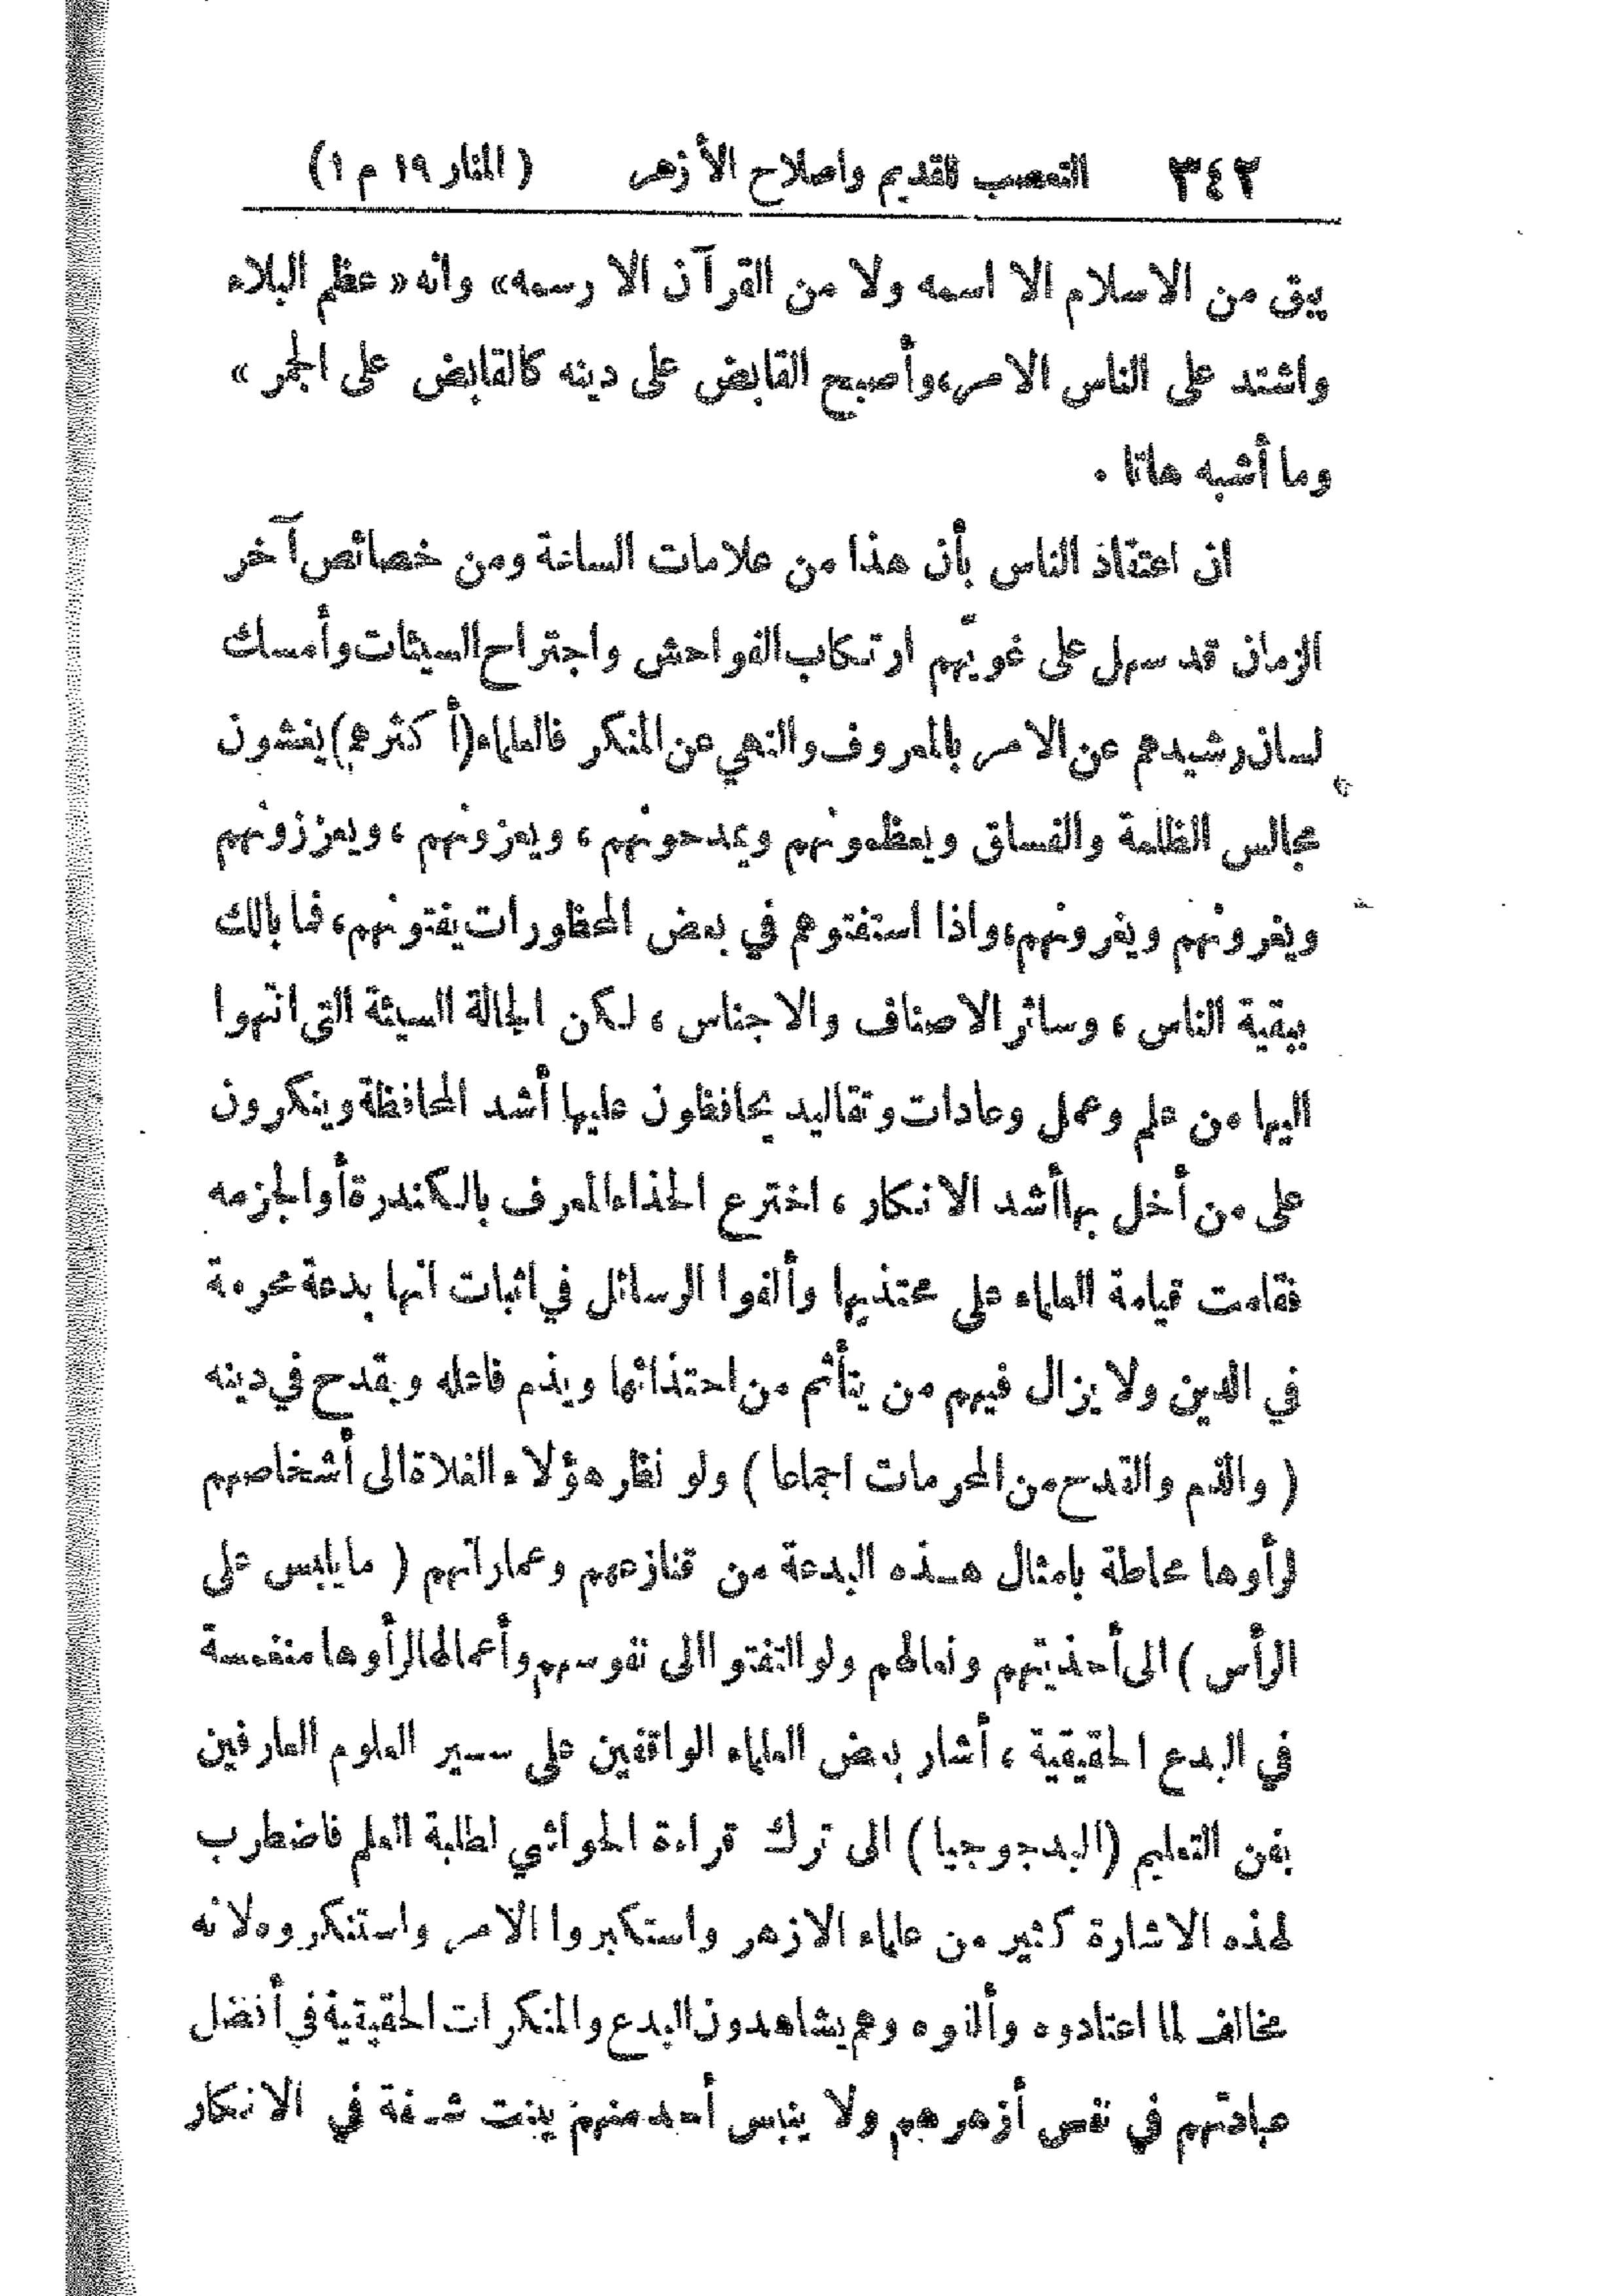 ٣٤٢ التعصب للقديم واصلاح الأزهر ( المنار ١٩ م ١)
يبق من الاسلام الا اسمه ولا من القرآن الا رسمه» وانه « عظم البلاء
واشتد على الناس الامر، وأصبح القابض على دينه كالقابض على الجمر »
وما أشبه هاتا .
ان اعتقاد الناس بأن هذا من علامات الساعة ومن خصائص آخر
الزمان قد سهل على غويّهم ارتكاب الفواحش واجتراح السيئات وأمسك
لسان رشيدهم عن الامر بالمعروف والنهي عن المنكر فالعلماء (أكثرهم) يغشون
مجالس الظلمة والفساق ويعظمونهم ويمدحونهم ، ويعزونهم ، ويعززونهم
ويغرونهم ويغرونهم، واذا استفتوهم في بعض المحظورات يفتونهم، فما بالك
ببقية الناس ، وسائر الاصناف والاجناس ، لكن الحالة السيئة التي انتهوا
اليها من علم وعمل وعادات وتقاليد يحافظون عليها أشد المحافظة وينكرون
على من أخل بها أشد الانكار ، اخترع الحذاء المعرف بالكندرة أو الجزمه
فقامت قيامة العلماء على محتذيها وألفوا الرسائل في اثبات انها بدعة محرمة
في الدين ولا يزال فيهم من يتأثم من احتذائها ويذم فاعله ويقدح في دينه
( والذم والقدح من المحرمات اجماعا ) ولو نظر هؤلاء الغلاة الى أشخاصهم
لرأوها محاطة بامثال هذه البدعة من قنازعهم وعماراتهم ( ما يلبس على
الرأس ) الى أحذيتهم ونعالهم ولو التفتوا الى نفوسهم وأعمالها لرأوها منغمسة
في البدع الحقيقية ، أشار بعض العلماء الواقفين على سير العلوم العارفين
بفن التعليم (البدجوجيا) الى ترك قراءة الحواشي لطلبة العلم فاضطرب
لهذه الاشارة كثير من علماء الازهر واستكبروا الامر واستنكروه لانه
مخالف لما اعتادوه وألفوه وهم يشاهدون البدع والمنكرات الحقيقية في أفضل
عبادتهم في نفس أزهرهم ولا ينبس أحد منهم ببنت شفة في الانكار